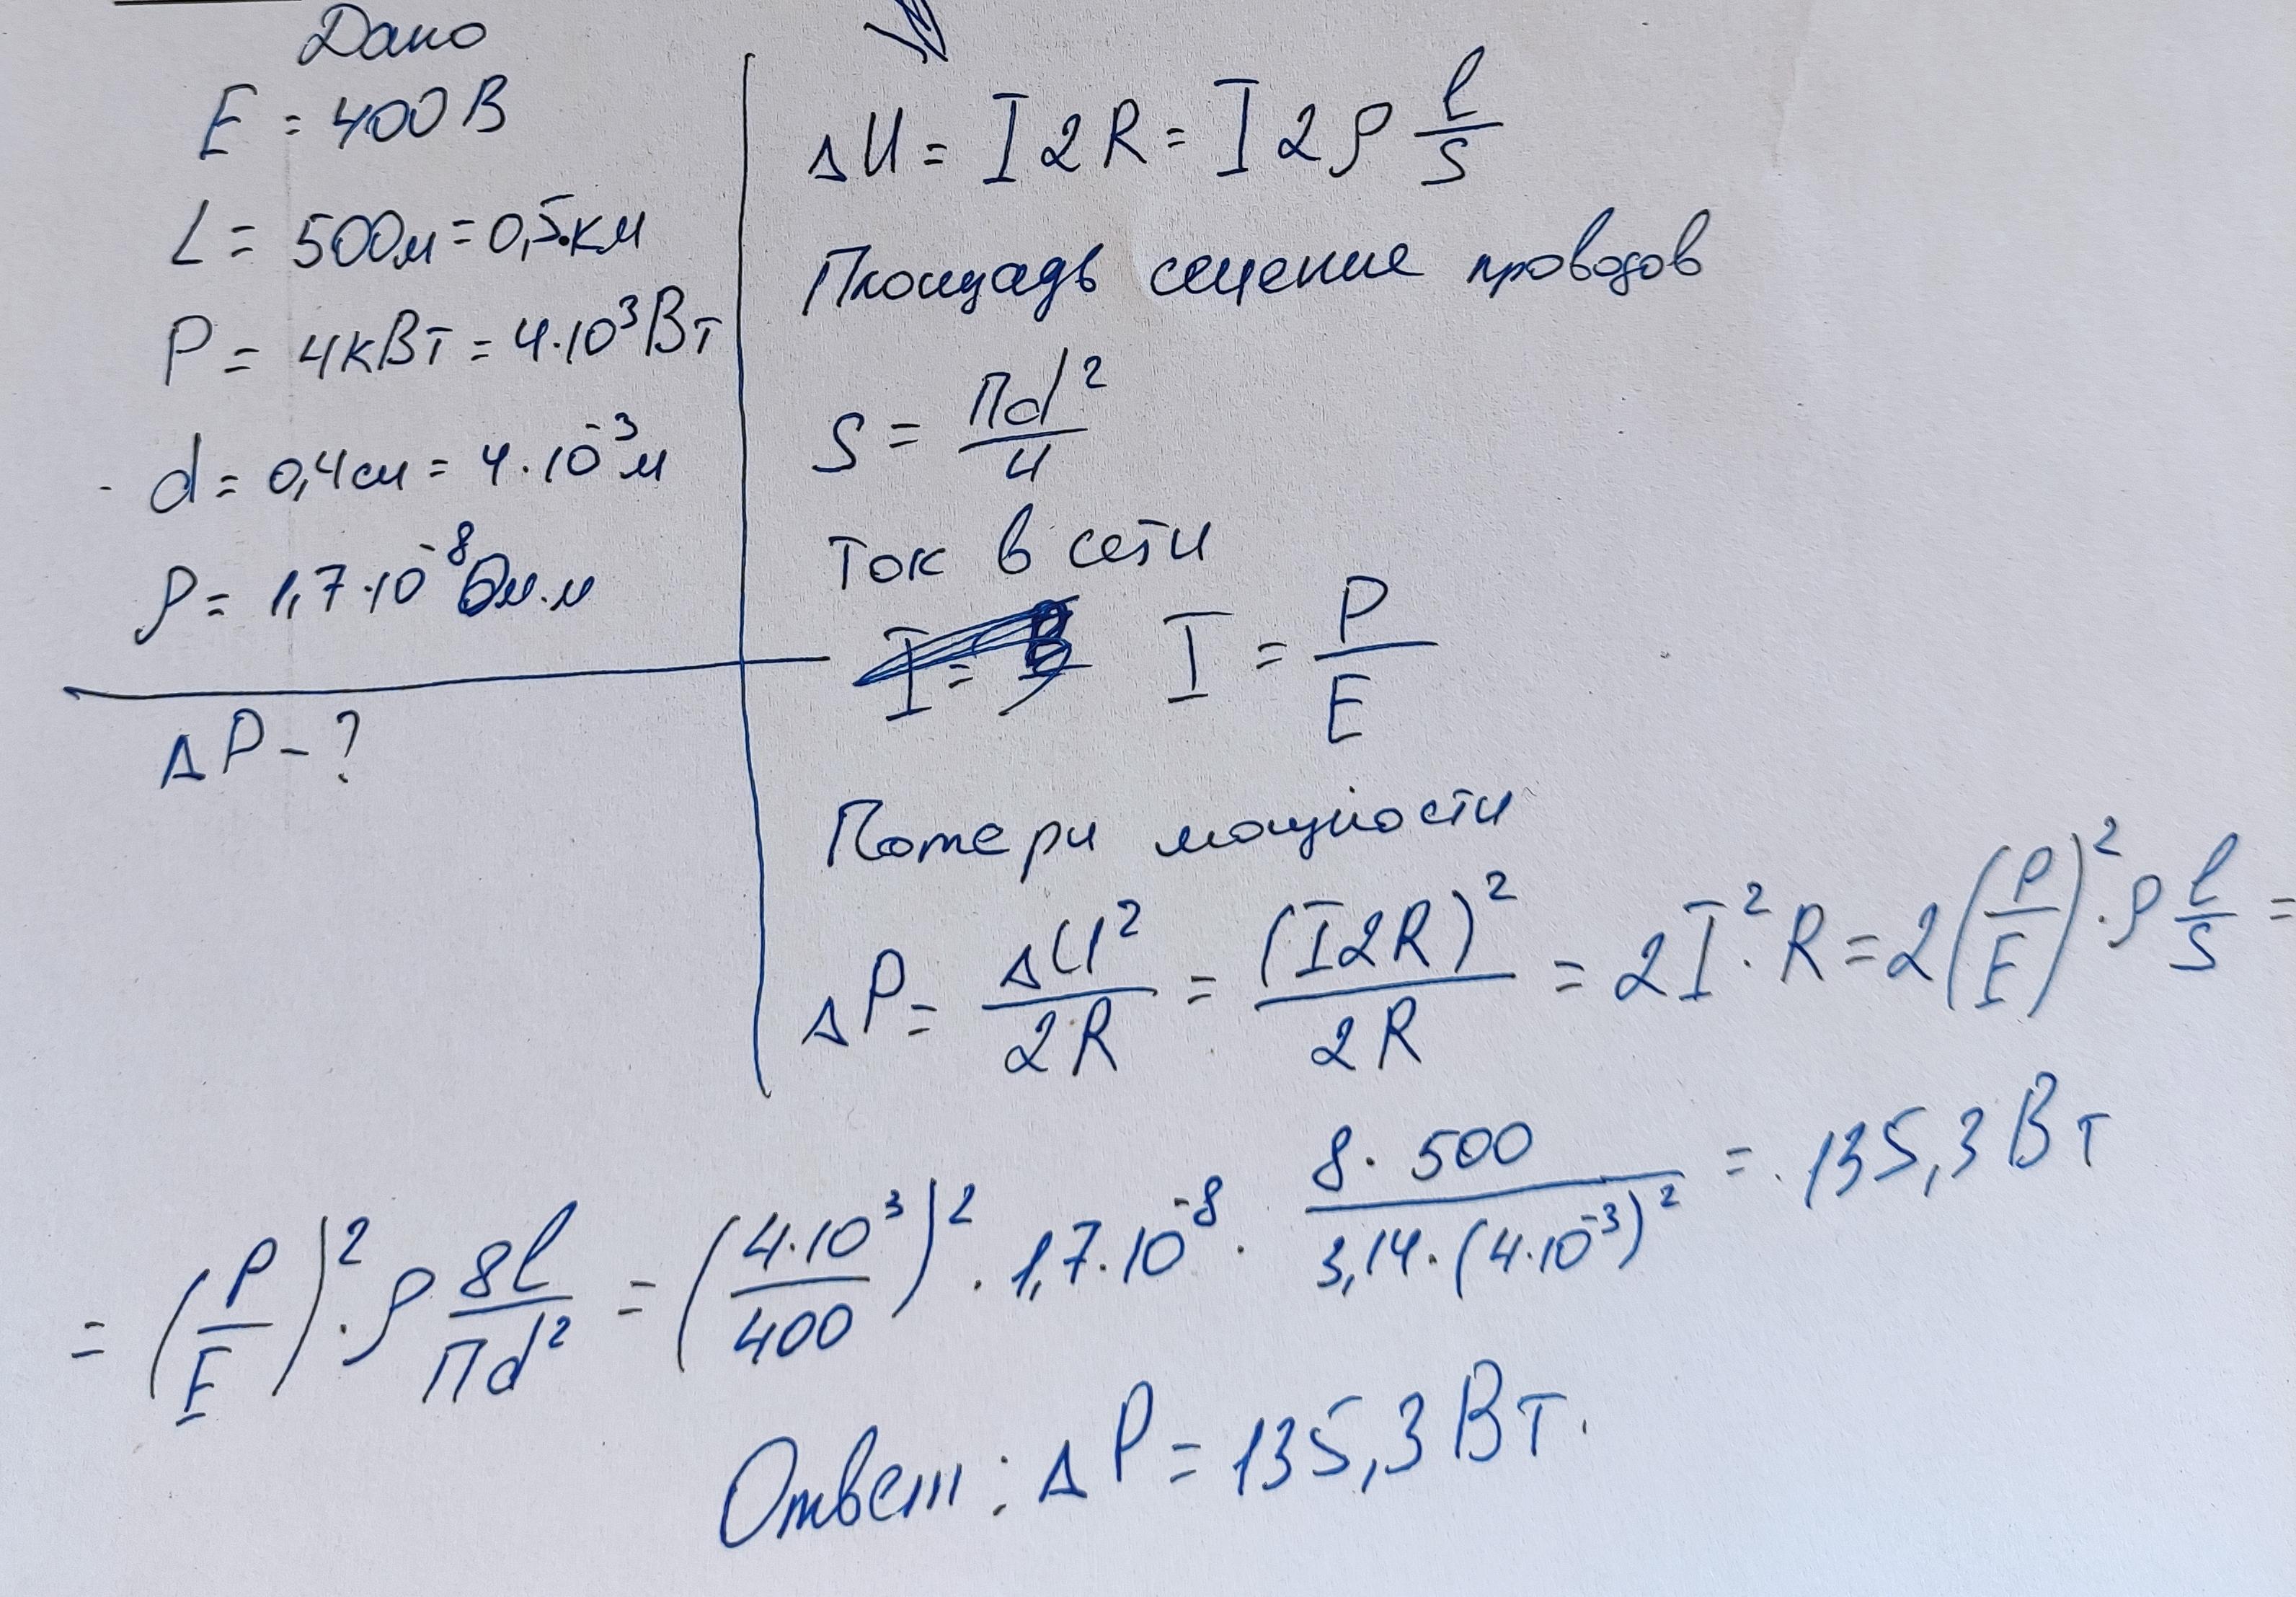 Дано
E = 400 В
L = 500м = 0,5 км
P = 4кВт = 4·10³ Вт
d = 0,4см = 4·10⁻³ м
ρ = 1,7·10⁻⁸ Ом·м
ΔP - ?
ΔU = I2R = I2ρ l/S
Площадь сечение проводов
S = Пd²/4
Ток в сети
I = P/E
Потери мощности
ΔP = ΔU²/2R = (I2R)²/2R = 2I²·R = 2(P/E)²·ρ l/S =
= (P/E)²·ρ 8l/Пd² = (4·10³/400)²·1,7·10⁻⁸· 8·500/3,14·(4·10⁻³)² = 135,3 Вт
Ответ: ΔP = 135,3 Вт.